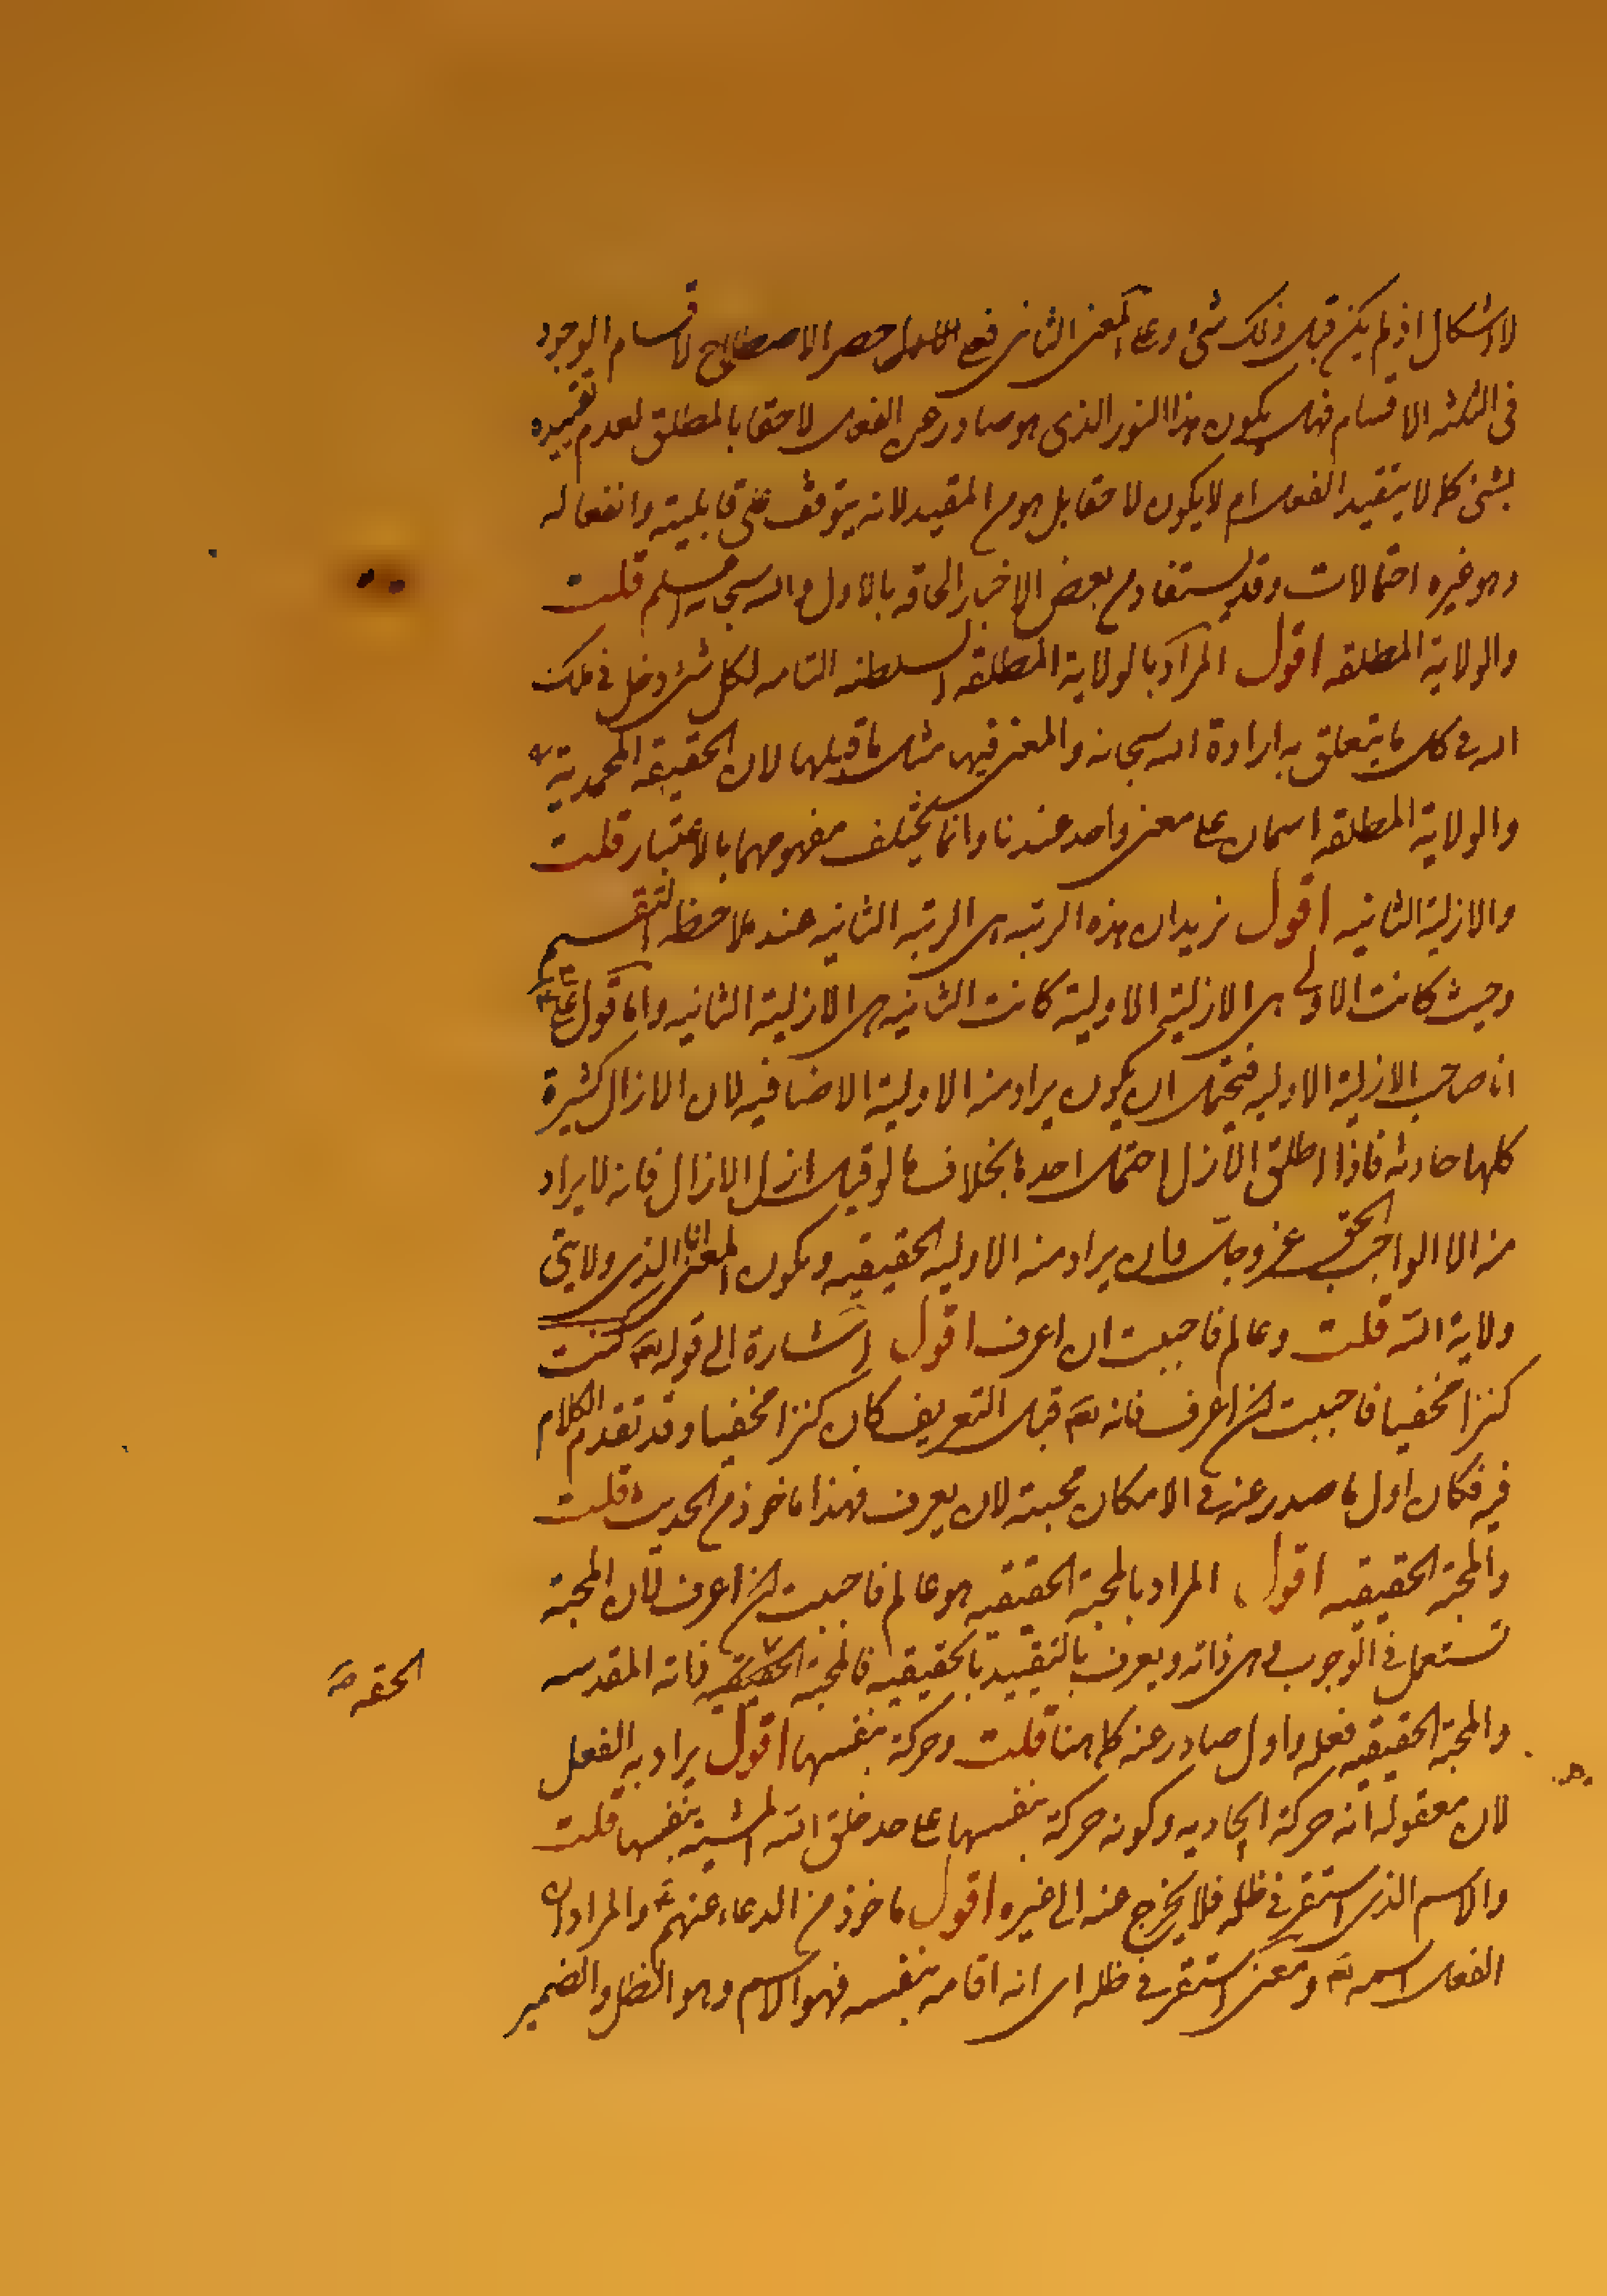 لا اشكال اذ لم يكن قبل ذلك شئ وعلى المعنى الثانى فعلى حصر الاصطلاح لاقسام الوجود
فى الثلثه الاقسام فهل يكون هذا النور الذى هو صادر عن الفعل لاحقا بالمطلق لعدم تقييده
بشئ كما لا يتقيد الفعل ام لا يكون لاحقا بل هو من المقيد لانه يتوقف على قابليته وانفعاله
وهو غيره احتمالات وقد يستفاد من بعض الاخبار الحاقه بالاول والله سبحانه اعلم قلت
والولاية المطلقه اقول المراد بالولاية المطلقه السلطنه التامه لكل شئ دخل فى ملك
الله فى كل ما يتعلق به ارادة الله سبحانه والمعنى فيها مثل ما قبلها لان الحقيقه المحمديه
والولاية المطلقه اسمان على معنى واحد عندنا وانما يختلف مفهومهما بالاعتبار قلت
والازلية الثانيه اقول نريد ان هذه الرتبه هى الرتبه الثانيه عند ملاحظه التقسيم
وحيث كانت الاولى هى الازلية الاولية كانت الثانيه هى الازلية الثانيه واما قول على ع
انا صاحب الازلية الاوليه فيحتمل ان يكون يراد منه الاولية الاضافيه لان الازال كثيرة
كلها حادثه فاذا اطلق الازل احتمل احدها بخلاف ما لو قيل ازل الازال فانه لا يراد
منه الا الواجب الحق عز وجل وان يراد منه الاوليه الحقيقيه ويكون المعنى انا الذى ولايتى
ولاية الله قلت وعالم فاحببت ان اعرف اقول اشارة الى قوله تع كنت
كنزا مخفيا فاحببت ان اعرف فانه تع قبل التعريف كان كنزا مخفيا وقد تقدم الكلام
فيه فكان اول ما صدر عنه فى الامكان محبته لان يعرف فهذا ماخوذ من الحديث قلت
والمحبة الحقيقيه اقول المراد بالمحبة الحقيقيه هو عالم فاحببت ان اعرف لان المحبة
تستعمل فى الوجوب وهى ذاته ويعرف بالتقييد بالحقيقيه فالمحبة الحقيقيه ذاته المقدسه
الحقه ص
والمحبة الحقيقيه فعله واول صادر عنه كما هنا قلت وحركة بنفسها اقول يراد به الفعل
لان معقوله انه حركة ايجاديه وكونه حركة بنفسها على حد خلق الله المشية بنفسها قلت
والاسم الذى استقر فى ظله فلا يخرج عنه الى غيره اقول ماخوذ من الدعاء عنهم ع والمراد ان
الفعل اسمه تع ومعنى استقر فى ظله اى انه اقامه بنفسه فهو الاسم وهو الظل والضمير